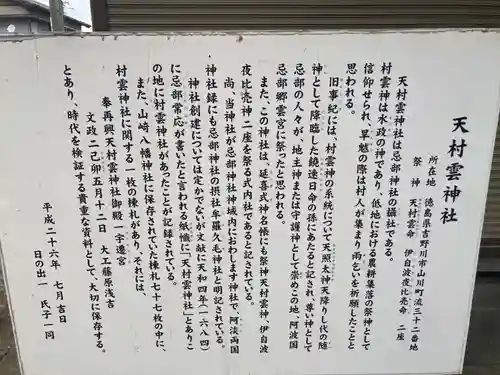 天村雲神社
所在地 徳島県吉野川市山川町流三十二番地
祭神 天村雲命 伊自波夜比売命 二座
天村雲神社は忌部神社の摂社である。
村雲神は水政の神であり、低地における農耕集落の祭神として
信仰せられ、早魃の際は村人が集まり雨乞いを祈願したことと
思われる。
旧事紀には、村雲神の系統について天照太神天降りし代の随
神として降臨した饒速日命の孫にあたると記され、尊い神として
忌部の人々が、地主神または守護神として崇めこの地、阿波国
忌部郷雲宮に祭ったと思われる。
また、この神社は、延喜式神名帳にも祭神天村雲神、伊自波
夜比売神二座を祭る式内社であると記されている。
尚、当神社が忌部神社神域内におわします神社で、阿淡両国
神社録にも忌部神社の摂社牟羅久毛神社と明記されている。
神社創建については定かでないが文献に天和四年(一六八四)
に忌部常応が書いたと言われる紙幟に「天村雲神社」とありこ
の地に村雲神社があったことが記録されている。
また、山崎八幡神社に保存されていた棟札七十七枚の中に、
村雲神社に関する一枚の棟札があり、それには、
奉再興天村雲神社御殿一宇遷宮
文政二己卯五月十二日 大工藤原浅吉
とあり、時代を検証する貴重な資料として、大切に保存する。
平成二十六年 七月吉日
日の出一 氏子一同